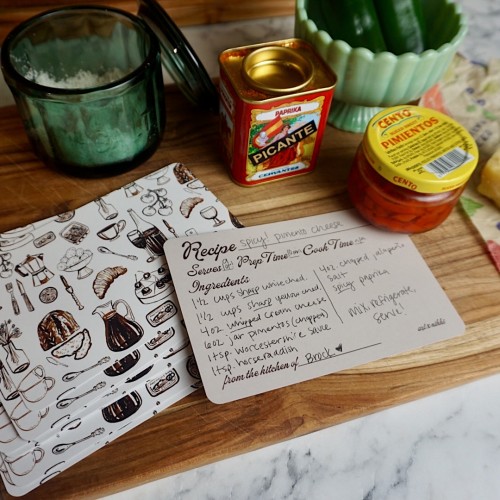 PAPRIKA
PICANTE
CENTO
PIMIENTOS
CENTO
Recipe Spicy! Pimento Cheese
Serves Prep Time Cook Time
Ingredients
1 1/2 cups sharp white ched
1 1/2 cups sharp yellow ched
4 oz whipped cream cheese
6 oz jar pimentos (chopped)
1 tsp. worcestershire sauce
1 tsp. horseradish
1/4 oz chopped jalapeño
salt
spicy paprika
Mix, refrigerate,
serve!
from the kitchen of Brock ♥